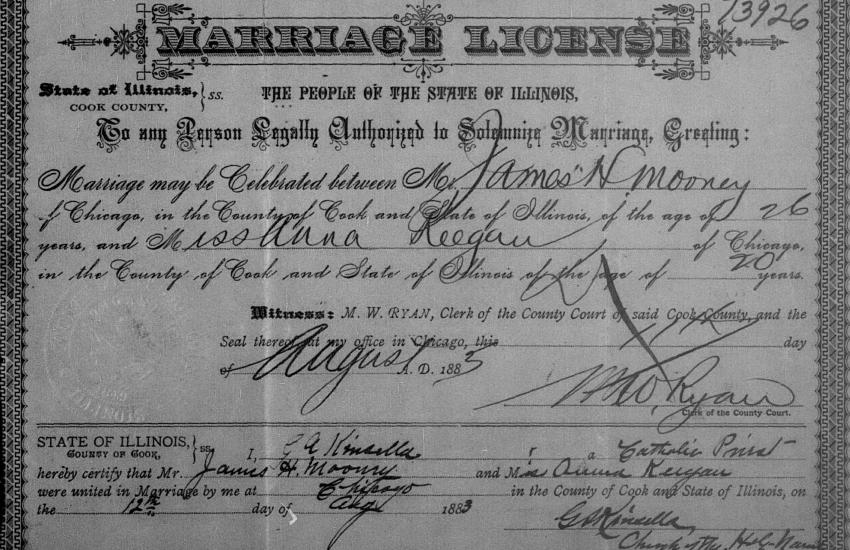 13926
MARRIAGE LICENSE
State of Illinois, } ss. THE PEOPLE OF THE STATE OF ILLINOIS,
COOK COUNTY,
To any Person Legally Authorized to Solemnize Marriage, Greeting:
Marriage may be Celebrated between Mr. James H. Mooney
of Chicago, in the County of Cook and State of Illinois, of the age of 26
years, and Miss Anna Keegan of Chicago,
in the County of Cook and State of Illinois of the age of 20 years.
Witness: M. W. RYAN, Clerk of the County Court of said Cook County, and the
Seal thereof at my office in Chicago, this 11th day
of August A. D. 1883
M. W. Ryan
Clerk of the County Court.
STATE OF ILLINOIS, } ss. I, G A Kinsella a Catholic Priest
COUNTY OF COOK,
hereby certify that Mr. James H. Mooney and Miss Anna Keegan
were united in Marriage by me at Chicago in the County of Cook and State of Illinois, on
the 12th day of Aug 1883
G A Kinsella
Church of the Holy Name